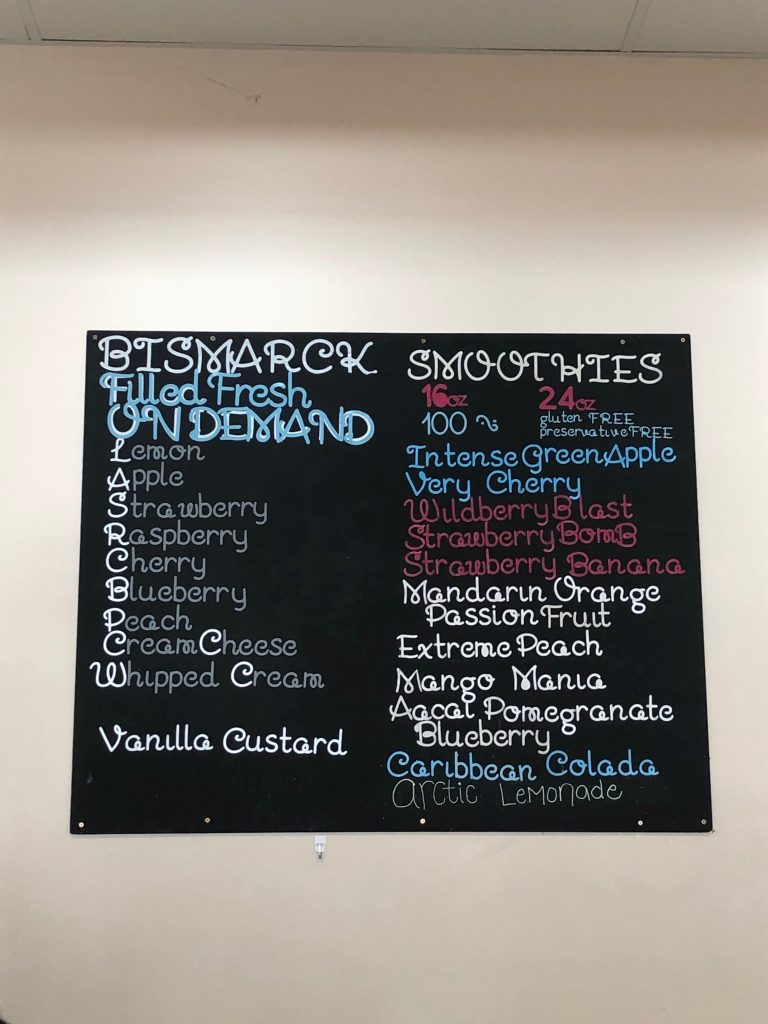 BISMARCK
Filled Fresh
ON DEMAND
Lemon
Apple
Strawberry
Raspberry
Cherry
Blueberry
Peach
Cream Cheese
Whipped Cream
Vanilla Custard
SMOOTHIES
16oz 24oz
100 gluten FREE
preservative FREE
Intense Green Apple
Very Cherry
Wildberry Blast
Strawberry BomB
Strawberry Banana
Mandarin Orange
Passion Fruit
Extreme Peach
Mango Mania
Aacai Pomegranate
Blueberry
Caribbean Colada
arctic Lemonade